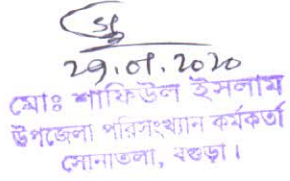 29.01.2020
মোঃ শাফিউল ইসলাম
উপজেলা পরিসংখ্যান কর্মকর্তা
সোনাতলা, বগুড়া।